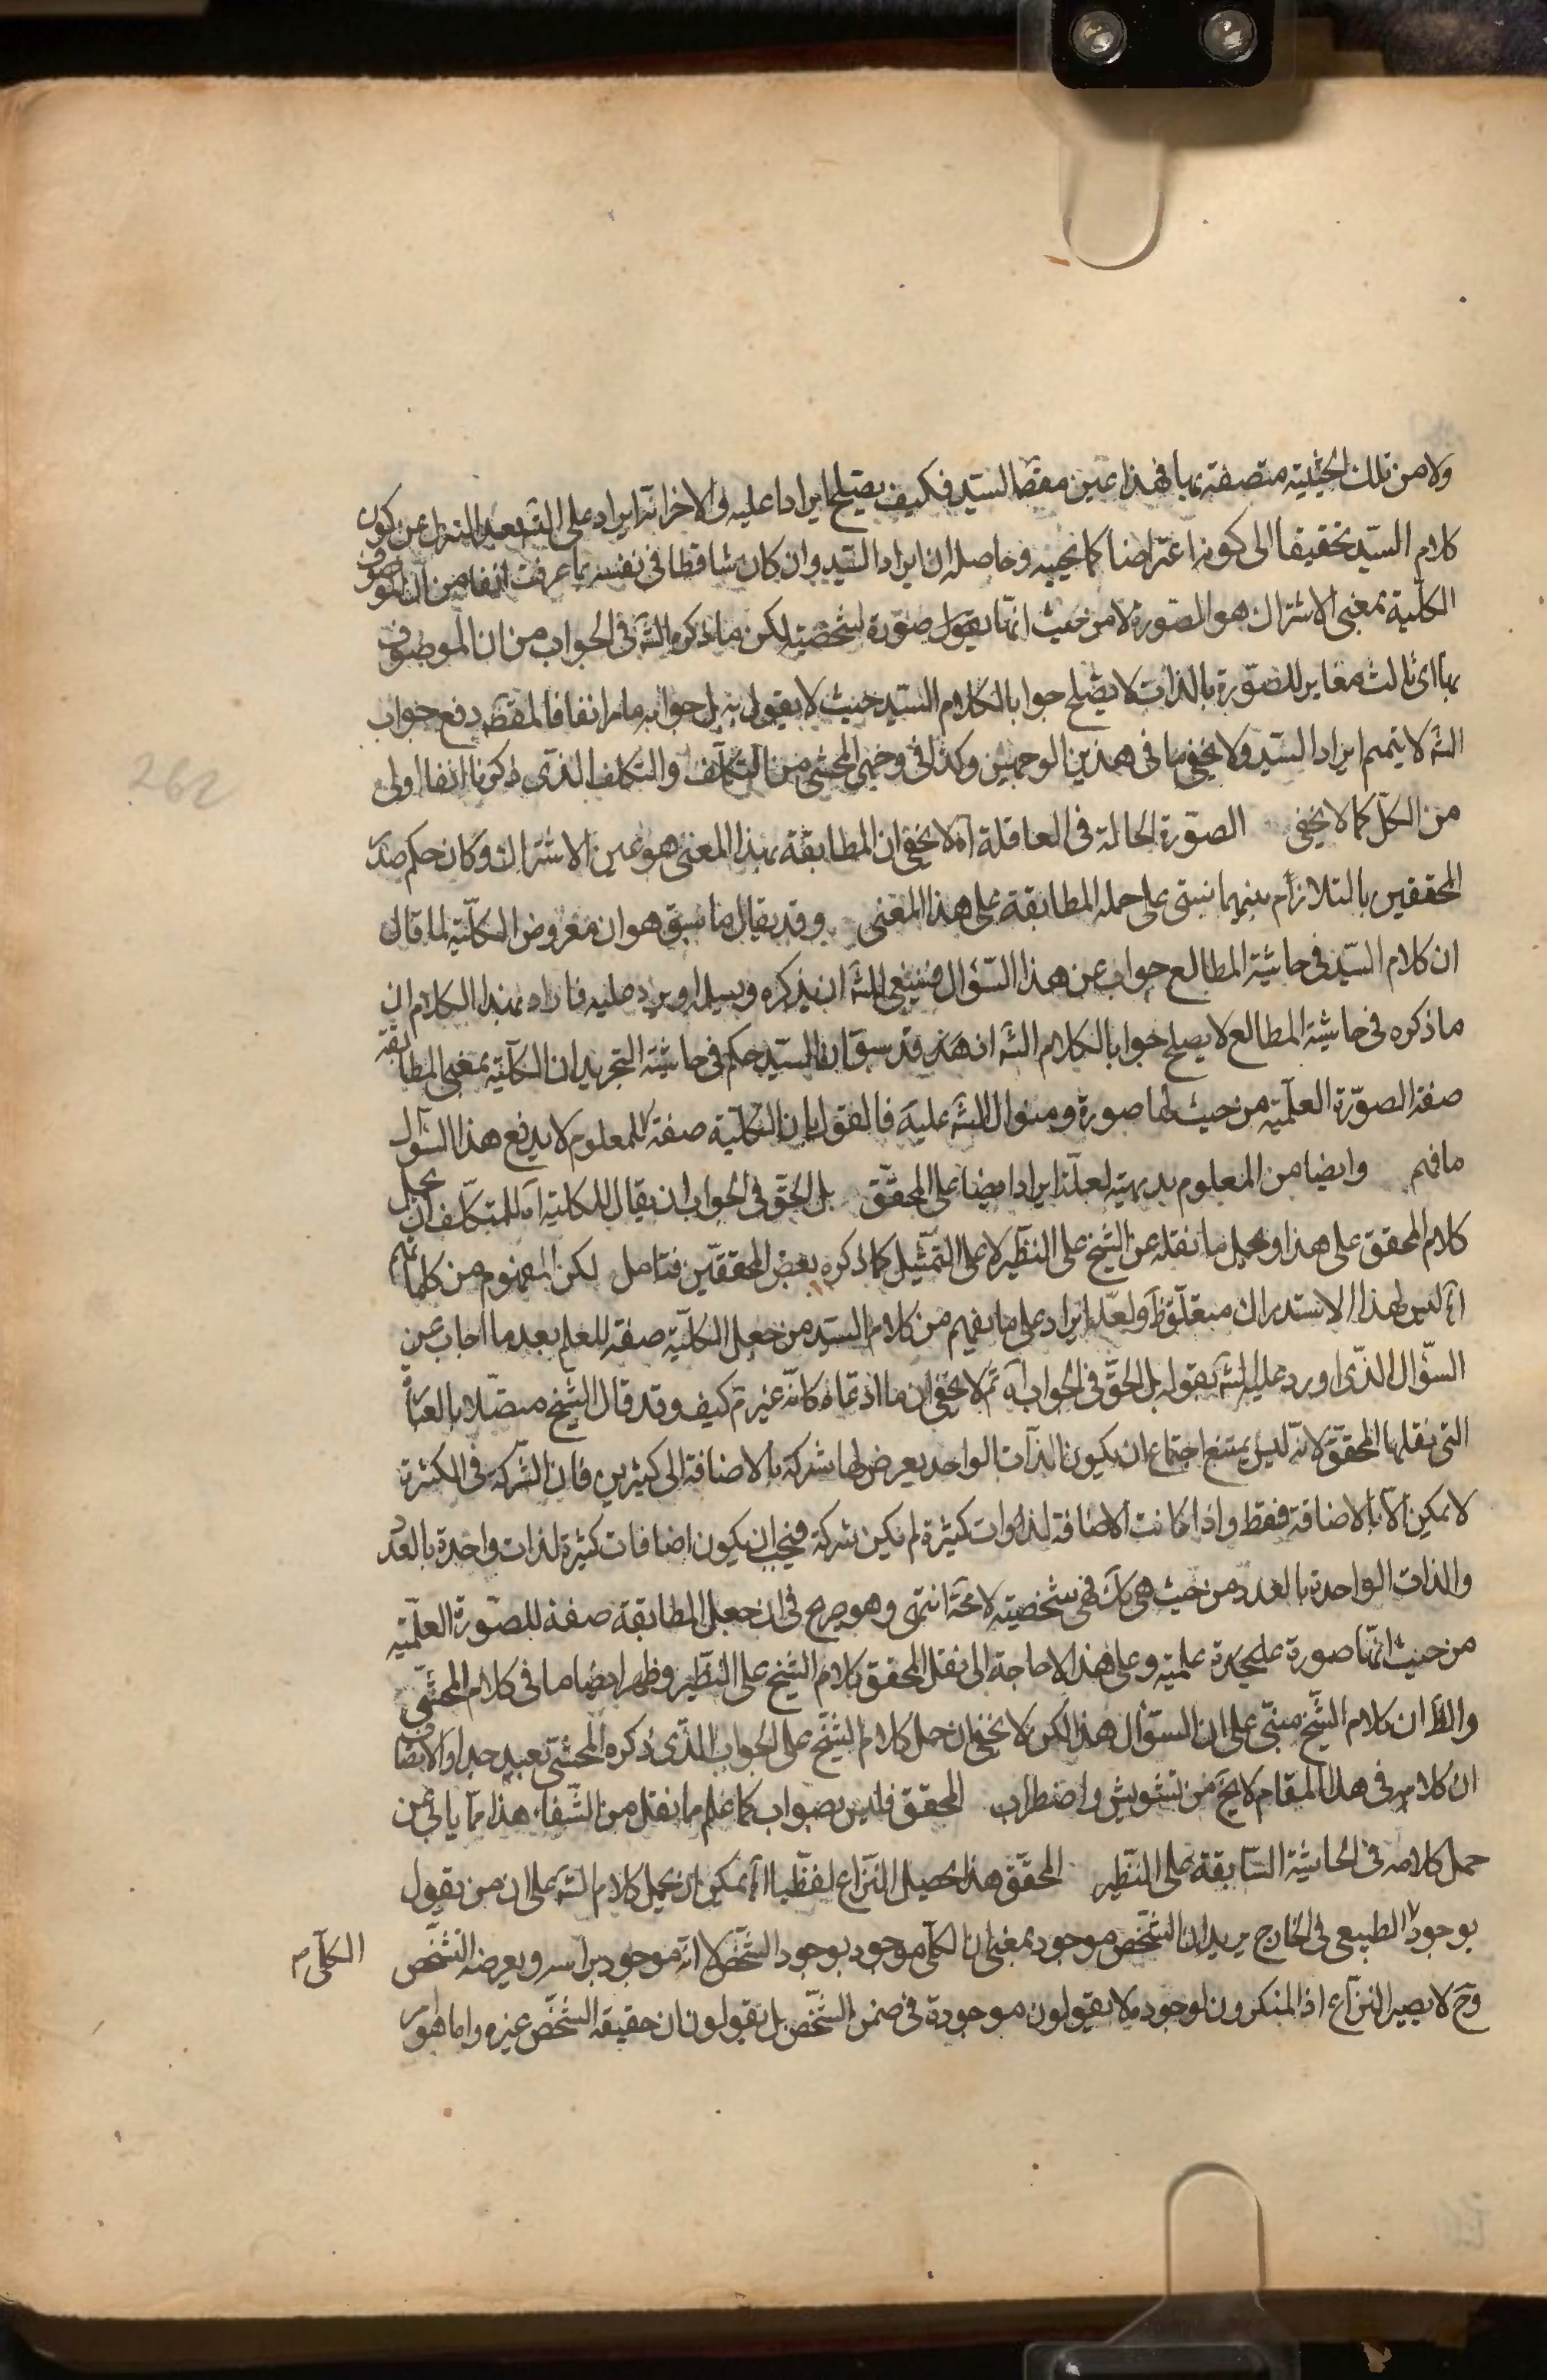 ولا من تلك الحيثية متصفة بها فهذا عين مقصد السيد فكيف يصلح ايرادا عليه والاخر انه ايراد على الشه بعد التنزل عن كون
كلام السيد تحقيقا الى كونه اعتراضا كما نحيبه وحاصله ان ايراد السيد وان كان ساقطا في نفسه بما عرفت انفا من ان الموصوف
الكلية بمعنى الاشتراك هو الصورة لا من حيث انها صورة شخصية لكن ما ذكره الشه في الجواب من ان الموصوف
بها اى ثالث مغاير للصورة بالذات لا يصلح جوابا لكلام السيد حيث لا يقول به بل جوابه ما مر انفا فالمقصد دفع جواب
الشه لا يتمم ايراد السيد ولا يخفى ما في هذين الوجهين وكذا في وجهى المحشى من التكلف والتكلف الذى ذكرناه انفا اولى
من الكل كما لا يخفى الصورة الحالة في العاقلة آه لا يخفى ان المطابقة بهذا المعنى هو عين الاشتراك وكان حكم صدر
المحققين بالتلازم بينهما نبتى على حمله المطابقة على هذا المعنى وقد يقال ما سبق هو ان معروض الكلية لما قال
ان كلام السيد في حاشية المطالع جواب عن هذا السؤال فينبغى للشه ان يذكره ويسئل او يرد عليه فاراد بهذا الكلام ان
ما ذكره في حاشية المطالع لا يصلح جوابا لكلام الشه اذ هذه قد سبق ان السيد حكم في حاشية التجريد ان الكلية بمعنى المطابقة
صفة الصورة العلمية من حيث انها صورة وسؤال الشه عليه فالقول بان الكلية صفة للمعلوم لا يدفع هذا السؤال
فافهم وايضا من المعلوم بديهية لعله ايراد ايضا على المحقق بل الحق في الجواب ان يقال للكلية آه للمتكلف ان يحمل
كلام المحقق على هذا ويحمل ما نقله عن الشيخ على النظير لا على التمثيل كما ذكره بعض المحققين فتامل لكن المفهوم من كلماتهم
اه ليس لهذا الاستدراك متعلق ظ ولعله ايراد على ما يفهم من كلام السيد من جعل الكلية صفة للعلم بعد ما اجاب عن
السؤال الذى اورد عليه الشه بقوله بل الحق في الجواب آه ثم لا يخفى ان ما ادعاه كانه غير تم كيف وقد قال الشيخ متصلا بالعبارة
التى نقلها المحقق لانه ليس يمتنع اجتماع ان يكون الذات الواحد يعرض لها شركة بالاضافة الى كثيرين فان الشركة في الكثرة
لا يمكن الا بالاضافة فقط واذا كانت الاضافة لذوات كثيرة لم يكن شركة فيجب ان يكون اضافات كثيرة لذات واحدة بالعدد
والذات الواحدة بالعدد من حيث هى كك فهى شخصية لا محة انتهى وهو صريح في ان جعل المطابقة صفة للصورة العلمية
من حيث انها صورة علمية وعلى هذا لا حاجة الى نقل المحقق كلام الشيخ على النظير وظهر ايضا ما في كلام المحشى
والظ ان كلام الشيخ مبنى على ان السؤال هذا لكن لا يخفى ان حمل كلام الشيخ على الجواب الذى ذكره المحشى بعيد جدا والانصاف
ان كلامه في هذا المقام لا يخ من تشويش واضطراب المحقق فليس بصواب كما علم ما نقل من الشفاء هذا مما يابى عن
حمل كلامه في الحاشية السابقة على النظير المحقق هذا يحصل النزاع لفظيا اه يمكن ان يحمل كلام الشه على ان من يقول
بوجود الطبيعى في الخارج يريد ان الشخص موجود بمعنى ان الكلى موجود بوجود الشخص لا انه موجود براسه ويعرضه التشخص
الكلى م
وح لا يصير النزاع اذ المنكرون لوجوده لا يقولون موجودة في ضمن الشخص بل يقولون ان حقيقة الشخص غيره واما هو
262